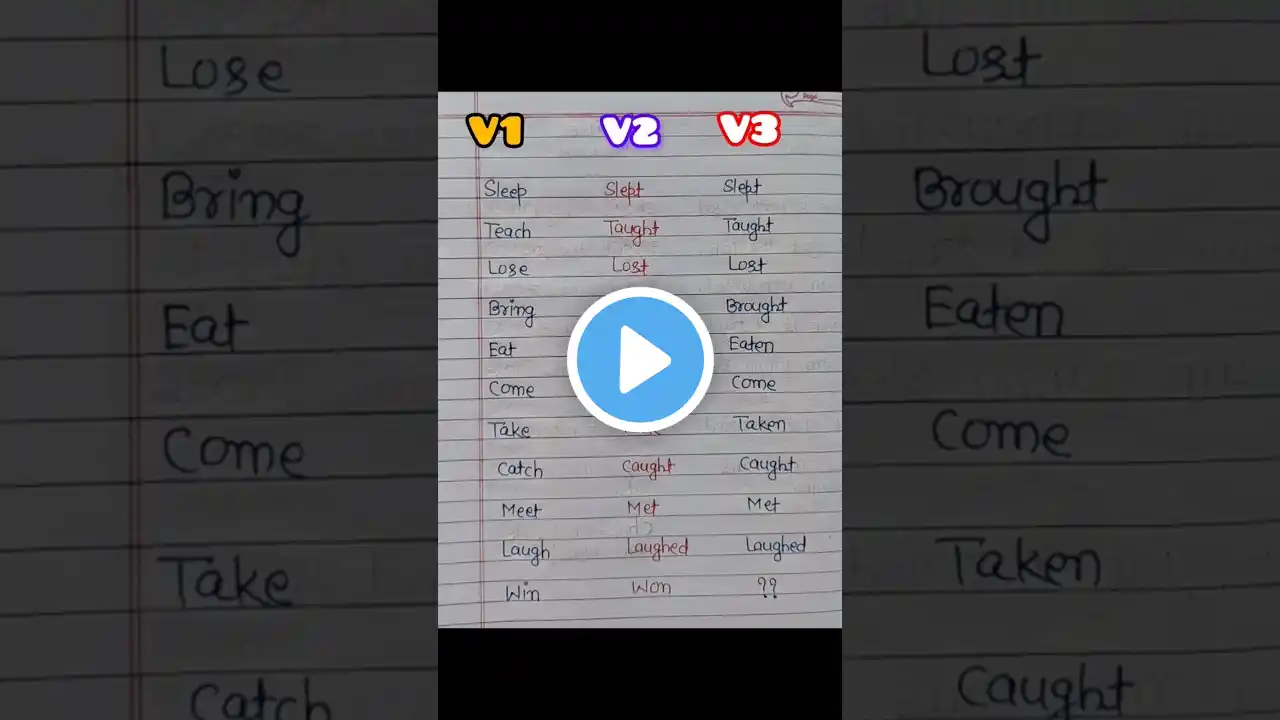 Lose Lost
Bring Brought
Eat Eaten
Come Come
Take Taken
Catch Caught
Page
V1 V2 V3
Sleep Slept Slept
Teach Taught Taught
Lose Lost Lost
Bring Brought
Eat Eaten
Come Come
Take Taken
Catch Caught Caught
Meet Met Met
Laugh Laughed Laughed
Win Won ??